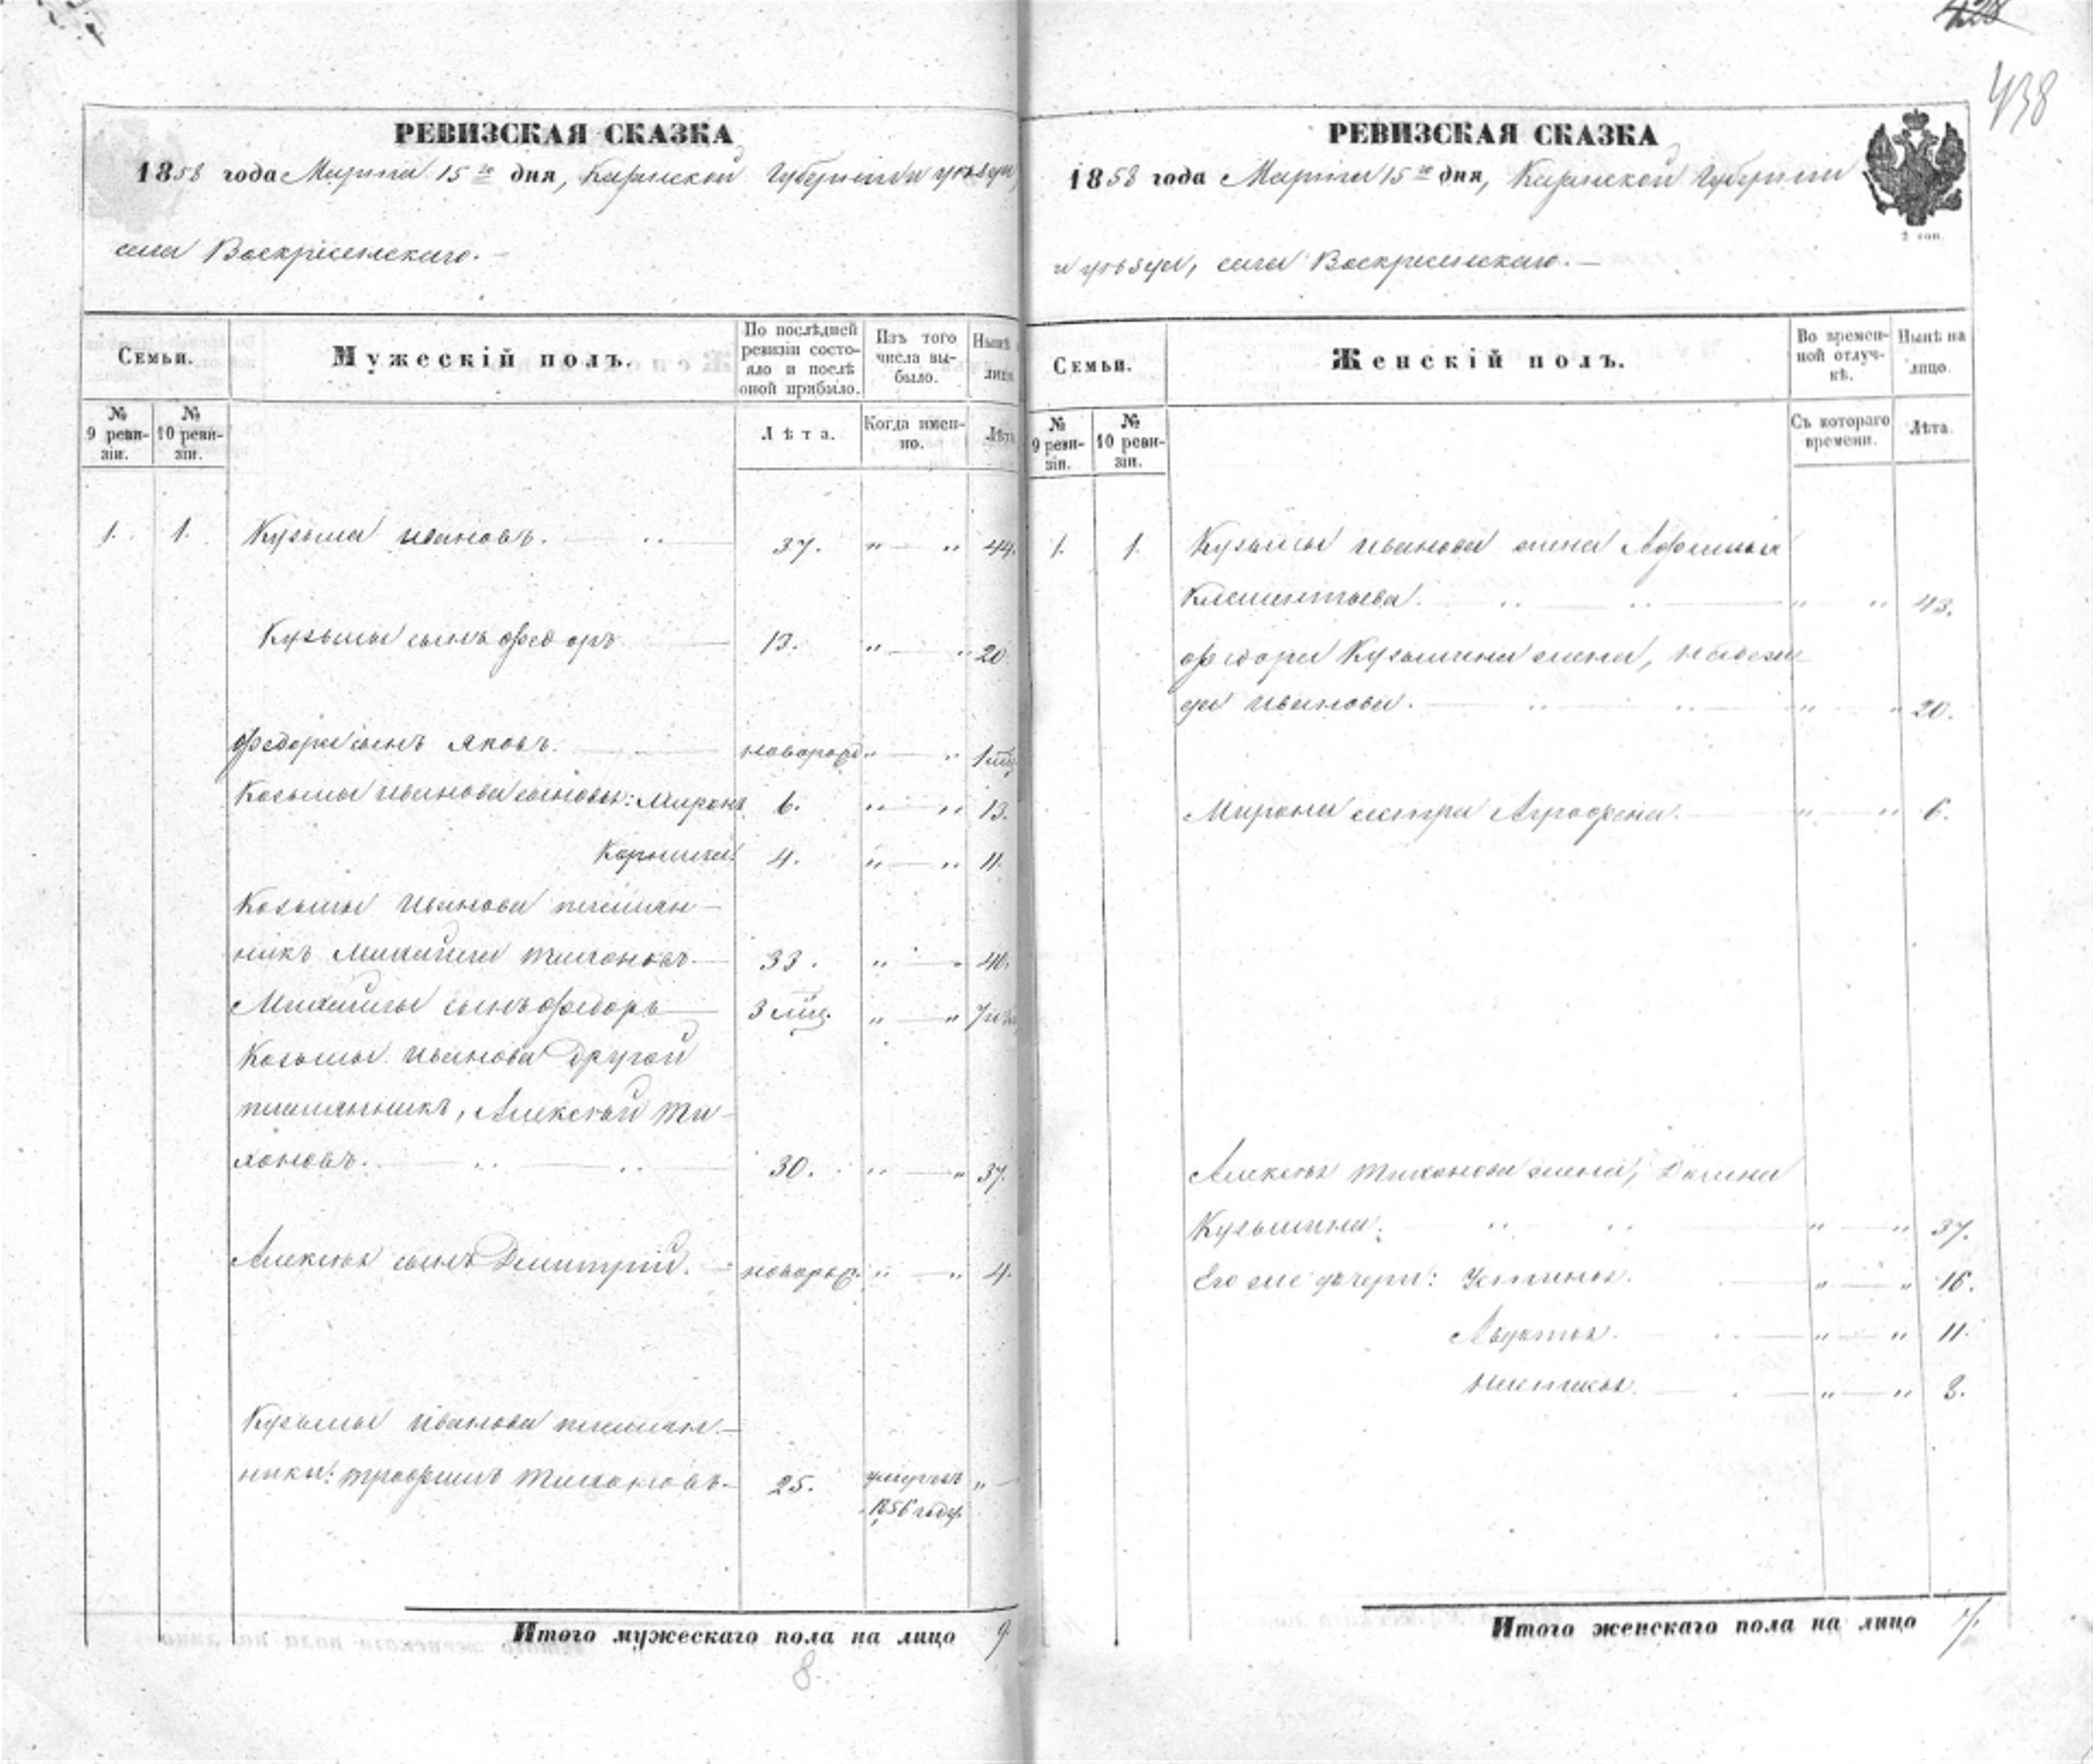 438
РЕВИЗСКАЯ СКАЗКА
1858 года Марта 15го дня, Казанской Губернии и уѣзда,
села Воскресенскаго. —
Семьи.
Мужескій полъ.
По послѣдней ревизіи состояло и послѣ оной прибыло.
Изъ того числа выбыло.
Нынѣ
лицо
№ 9 ревизіи.
№ 10 ревизіи.
Лѣта.
Когда именно.
Лѣта
1. 1. Кузьма Ивановъ. 37. „ — „ 44.
Кузьмы сынъ Федоръ 13. „ — „ 20.
Федора сынъ Яковъ. новорожд „ — „ 1 мѣс
Козьмы Иванова сыновья: Миронъ 6. „ — „ 13.
Корнила 4. „ — „ 11.
Козьмы Иванова племян—
никъ Михайла Тихоновъ — 33. „ — „ 40.
Михайлы сынъ Федоръ 3 мѣс. „ — „
Козьмы Иванова другой
племянникъ, Алексѣй Ти—
хоновъ. 30. „ — „ 37.
Алексѣя сынъ Дмитрій. — новорож. „ — „ 4.
Кузьмы Иванова племян—
ники: Трофимъ Тихоновъ. 25. умеръ въ „ —
1856 году.
Итого мужескаго пола на лицо 9
8.
РЕВИЗСКАЯ СКАЗКА
2 коп.
1858 года Марта 15го дня, Казанской Губернии
и уѣзда, села Воскресенскаго. —
Семьи.
Женскій полъ.
Во временной отлучкѣ.
Нынѣ на лицо.
№ 9 ревизіи.
№ 10 ревизіи.
Съ котораго времени.
Лѣта.
1. 1. Кузьмы Иванова жена Афимья
Клементьева. „ „ 43.
Федора Кузьмина жена, Надеж
да Иванова. „ „ 20.
Мирона сестра Аграфена. „ — „ 6.
Алексѣя Тихонова жена,
Кузьмина. „ — „ 37.
Его же дочери: Устинья. „ — „ 16.
Авдотья. „ — „ 11.
„ — „ 8.
Итого женскаго пола на лицо 7.